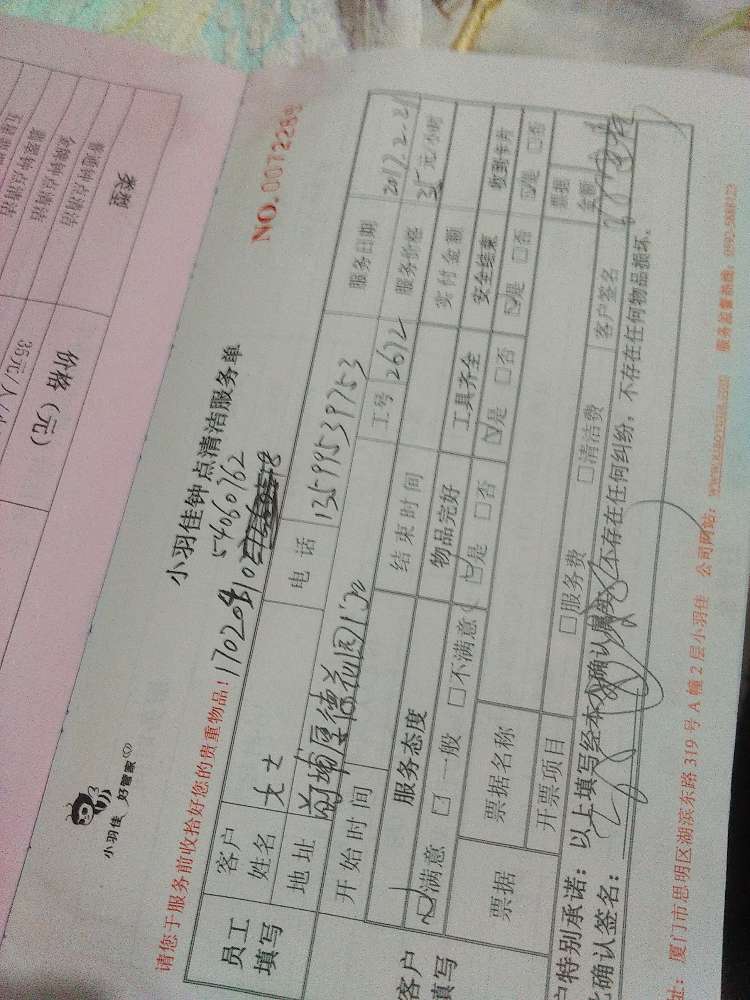 小羽佳 好管家
小羽佳钟点清洁服务单
NO. 0072289
54060762
请您于服务前收拾好您的贵重物品!
员工填写
客户姓名 女士 电话 13599539753 服务日期 2017.2.21
地址 厚德花园 工号 2672 服务价格 35元/小时
开始时间 结束时间 实付金额
客户填写
服务态度 物品完好 工具齐全 安全结束 收到卡片
☑满意 □一般 □不满意 ☑是 □否 ☑是 □否 ☑是 □否 ☑是 □否
票据 票据名称 票据金额
开票项目 □服务费 □清洁费 客户签名
户特别承诺:以上填写经本人确认属实,不存在任何纠纷,不存在任何物品损坏。
确认签名:
址:厦门市思明区湖滨东路319号A幢2层小羽佳 公司网站: 服务监督热线:0592-5688123
类型 价格(元)
普通钟点清洁 35元/人/
金牌钟点清洁